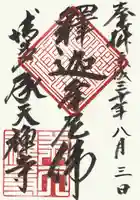 奉拝 平成三十年八月三日
釋迦牟尼佛
博多 承天禅寺